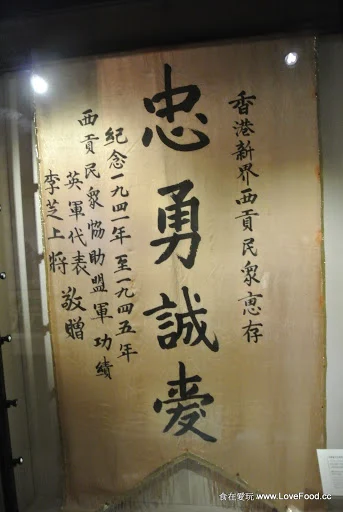 香港新界西貢民衆惠存
忠勇誠愛
紀念一九四一年至一九四五年
西貢民衆協助盟軍功績
英軍代表
李芝上將 敬贈
食在愛玩 www.LoveFood.cc